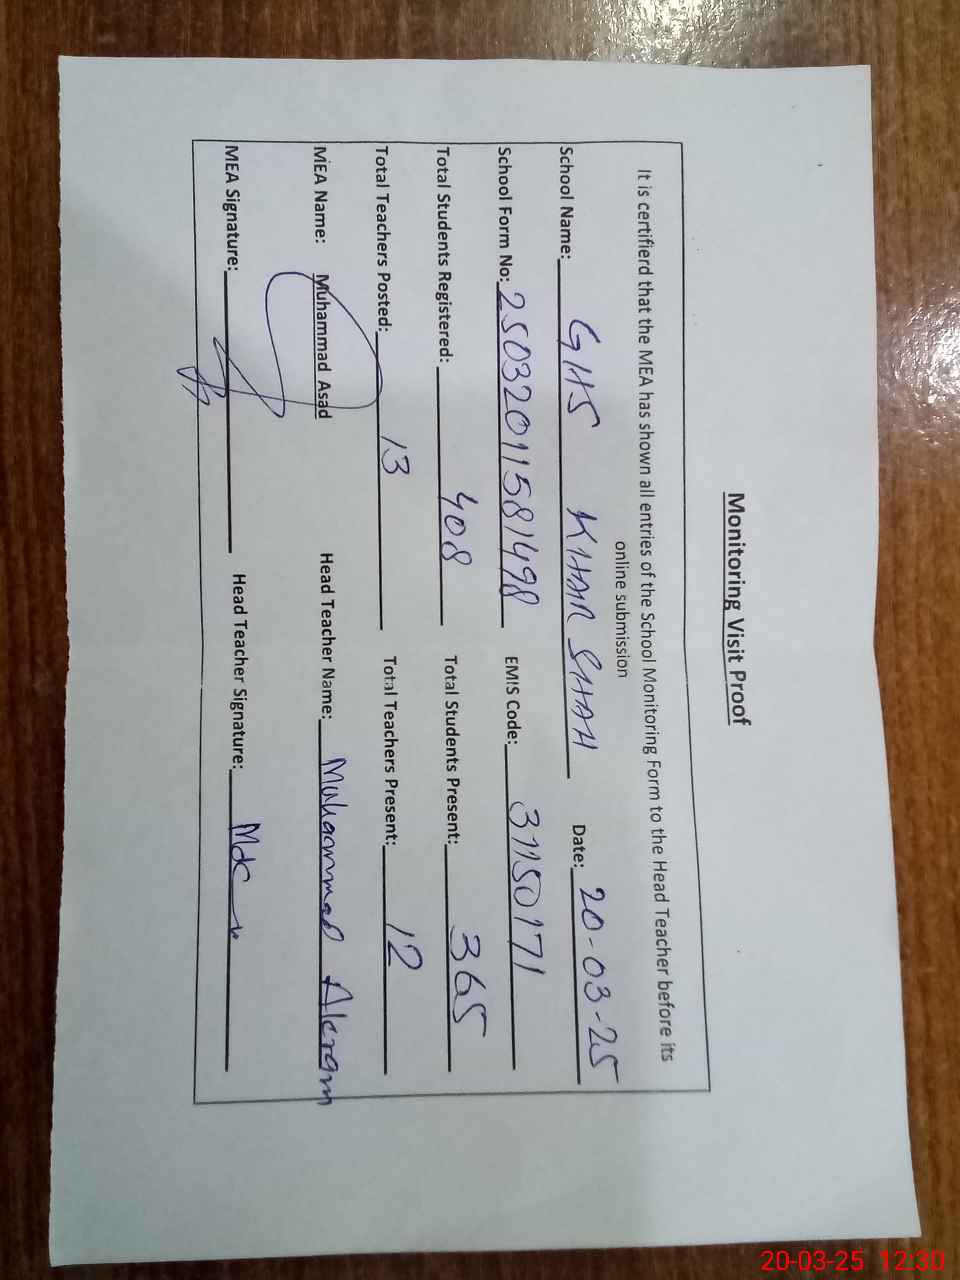 Monitoring Visit Proof
It is certifierd that the MEA has shown all entries of the School Monitoring Form to the Head Teacher before its
online submission
School Name: GHS KHAIR SHAH Date: 20-03-25
School Form No: 25032011581498 EMIS Code: 31150171
Total Students Registered: 408 Total Students Present: 365
Total Teachers Posted: 13 Total Teachers Present: 12
MEA Name: Muhammad Asad Head Teacher Name: Muhammad Akram
MEA Signature: Head Teacher Signature:
20-03-25 12:30